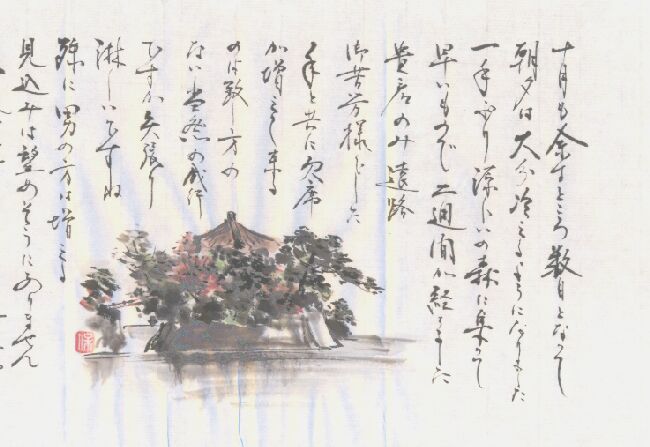 十月も余すところ数日となって
朝夕は大分冷えるようになりました
一年ぶり の森に集って
早いもので二週間が経ちました
のみ遠路
御苦労様でした
年と共に欠席
が増えて来る
のは致し方の
ない当然の成行
ですが矢張り
淋しいですね
殊に男の方は増える
見込みは望めそうにありません